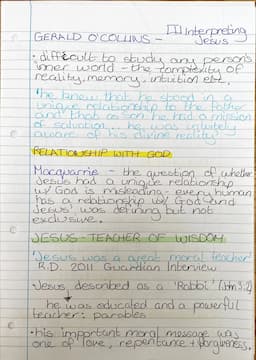 GERALD O'COLLINS - [1] Interpreting
Jesus
• difficult to study any persons
inner world - the complexity of
reality, memory, intuition etc.
'he knew that he stood in a
unique relationship to the father
and that as son he had a mission
of salvation... he was
aware of his divine reality'
RELATIONSHIP WITH GOD
Macquarrie - the question of whether
Jesus had a unique relationship
w/ God is misleading - every human
has a relationship w/ God and
Jesus' was defining but not
exclusive.
JESUS - TEACHER OF WISDOM
'Jesus was a great moral teacher'
R.D. 2011 Guardian Interview
• Jesus, described as a 'Rabbi' (John 3:2)
he was educated and a powerful
teacher: parables
• his important moral message was
one of love, repentance + forgiveness.